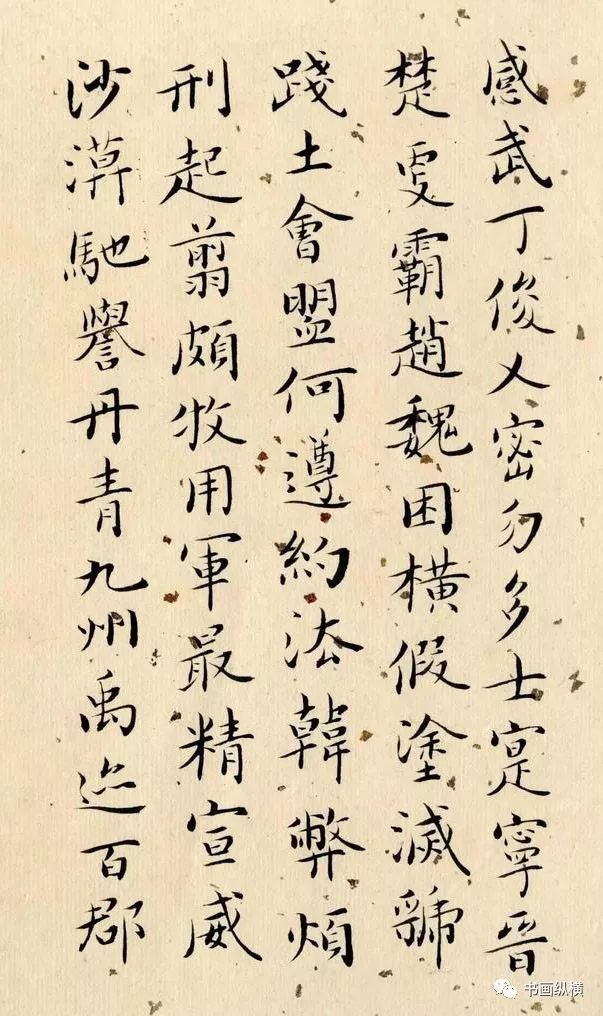 感武丁俊乂密勿多士寔寧晉
楚更霸趙魏困橫假塗滅虢
踐土會盟何遵約法韓弊煩
刑起翦頗牧用軍最精宣威
沙漠馳譽丹青九州禹迹百郡
书画纵横